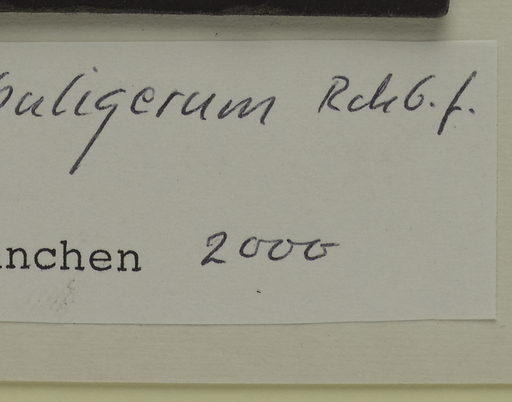 buligerum Rchb.f.
nchen 2000